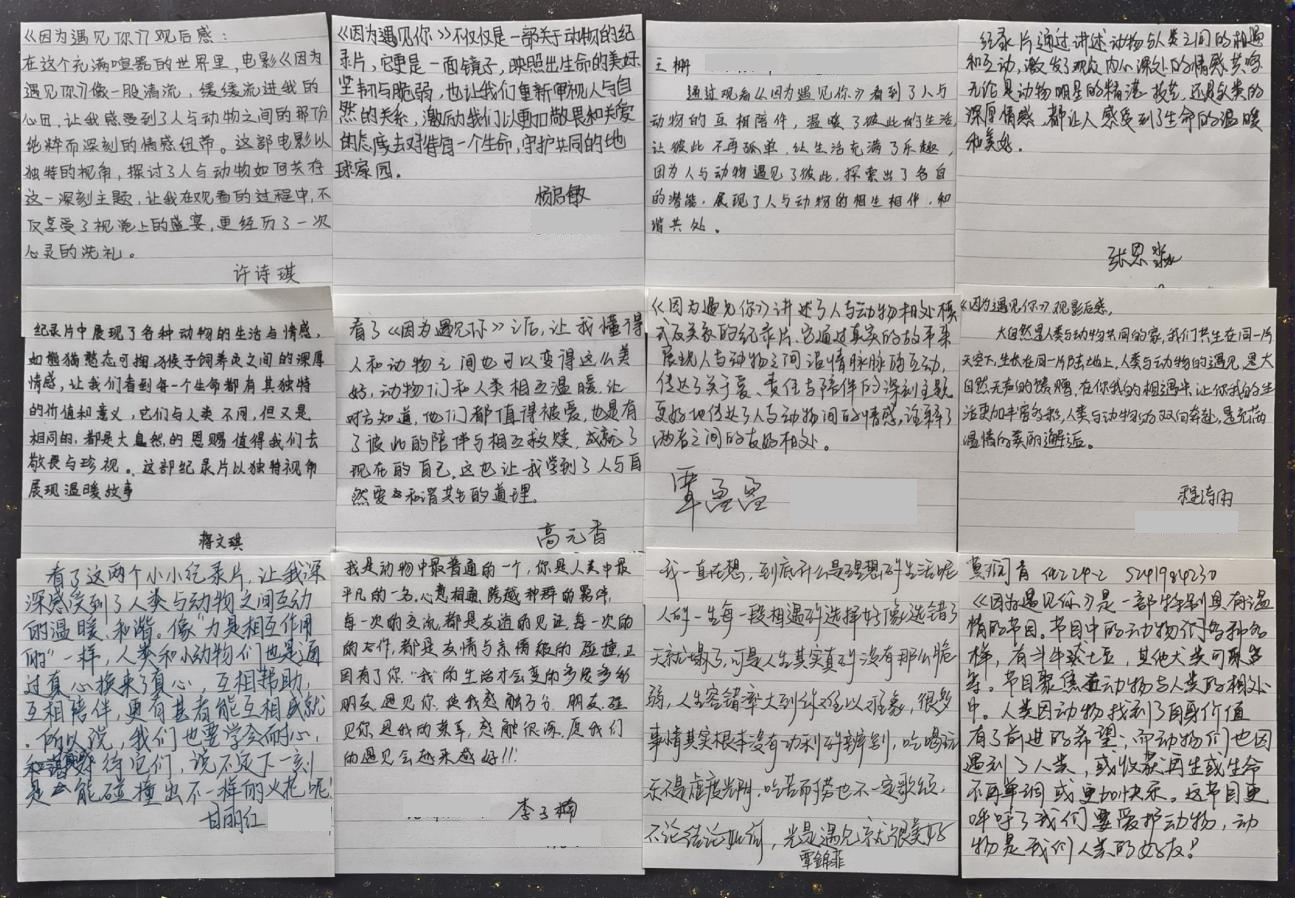 《因为遇见你》观后感：
在这个充满喧嚣的世界里，电影《因为
遇见你》像一股清流，缓缓流进我的
心田，让我感受到了人与动物之间的那份
纯粹而深刻的情感纽带。这部电影以
独特的视角，探讨了人与动物如何共存
这一深刻主题，让我在观看的过程中，不
仅享受了视觉上的盛宴，更经历了一次
心灵的洗礼。
许诗琪
《因为遇见你》不仅仅是一部关于动物的纪
录片，它更是一面镜子，映照出生命的美好、
坚韧与脆弱，也让我们重新审视人与自
然的关系，激励我们以更加敬畏和关爱
的态度去对待每一个生命，守护共同的地
球家园。
杨启敏
王栅
通过观看《因为遇见你》看到了人与
动物的互相陪伴，温暖了彼此的生活
让彼此不再孤单，给生活充满了乐趣，
因为人与动物遇见了彼此，探索出了各自
的潜能，展现了人与动物的相生相伴，和
谐共处。
纪录片通过讲述动物与人类之间的相遇
和互动，激发了观众内心深处的情感共鸣
无论是动物明星的精湛技艺，还是人类的
深厚情感，都让人感受到了生命的温暖
和美好。
张恩淼
纪录片中展现了各种动物的生活与情感，
如熊猫憨态可掬，猴子饲养员之间的深厚
情感，让我们看到每一个生命都有其独特
的价值和意义，它们与人类不同，但又是
相同的，都是大自然的恩赐值得我们去
敬畏与珍视。这部纪录片以独特视角
展现温暖故事
蒋文琪
看了《因为遇见你》之后，让我懂得
人和动物之间也可以变得这么美
好，动物们和人类相互温暖，让
对方知道，他们都值得被爱，也是有
了彼此的陪伴与相互救赎，成就了
现在的自己。这也让我学到了人与自
然要和谐共生的道理。
高元香
《因为遇见你》讲述了人与动物相处模
式及关系的纪录片，它通过真实的故事来
展现人与动物之间温情脉脉的互动，
传达了关于爱、责任与陪伴的深刻主题
更好地传达了人与动物间的情感，诠释了
两者之间的友好相处。
覃盈盈
《因为遇见你》观影后感，
大自然是人类与动物共同的家，我们共生在同一片
天空下，生长在同一片陆地上，人类与动物的遇见，是大
自然无声的馈赠，在你我的相遇中，让你我的生
活更加丰富多彩，人类与动物的双向奔赴，是充满
温情的美的邂逅。
程诗雨
看了这两个小小纪录片，让我深
深感受到了人类与动物之间互动
的温暖、和谐。像“力是相互作用
的”一样，人类和小动物们也是通
过真心换来了真心，互相帮助，
互相陪伴，更有甚者能互相成就
。所以说，我们也要学会耐心，
好待它们，说不定下一刻
是能碰撞出不一样的火花呢
甘丽红
我是动物中最普通的一个，你是人类中最
平凡的一名，心意相通，跨越种群的羁绊，
每一次的交流，都是友谊的见证，每一次的
的合作，都是友情与亲情般的碰撞，正
因有了你“我”的生活才会变的多姿多彩
朋友，遇见你，使我感触万分，朋友，碰
见你，是我的荣幸，感触很深，愿我们
的遇见会越来越好!!!
李子楠
我一直在想，到底什么是理想的生活呢
人的一生每一段相遇的选择好像选错了
天就塌了，可是人生其实真的没有那么脆
弱，人生容错率大到你难以想象，很多
事情其实根本没有功利的辨别，吃喝玩
乐不是虚度光阴，吃苦耐劳也不一定歌颂，
不论结论如何，光是遇见就很美好
覃锦菲
黄润青 护224-2 5241984230
《因为遇见你》是一部特别具有温
情的节目。节目中的动物们各种各
样，有斗牛獒土豆，其他犬类可聪等
等。节目聚焦动物与人类的相处
中。人类因动物找到了自身价值
有了前进的希望；而动物们也因
遇到了人类，或收获再生或生命
不再单调或更加快乐。这节目更
呼吁了我们要爱护动物，动
物是我们人类的好友！